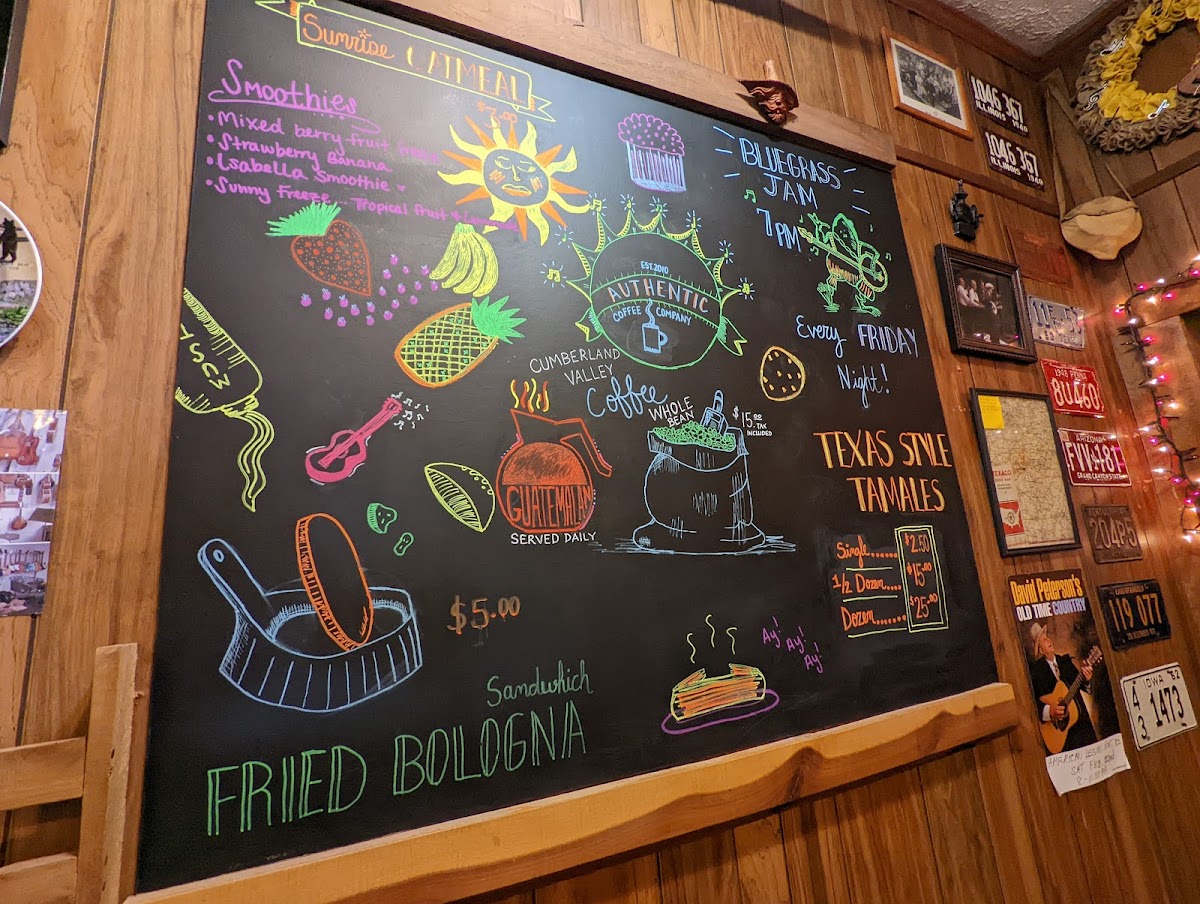 Sunrise OATMEAL
Smoothies
• Mixed berry fruit
• Strawberry Banana
• Isabella Smoothie
• Sunny Freeze... Tropical fruit &
BLUEGRASS
JAM
7 PM
Every FRIDAY
Night!
EST. 2010
AUTHENTIC
COFFEE COMPANY
CUMBERLAND
VALLEY
Coffee
WHOLE
BEAN
$15.00
TAX
INCLUDED
GUATEMALAN
SERVED DAILY
TEXAS STYLE
TAMALES
Single...... $2.50
1/2 Dozen..... $15.00
Dozen...... $25.00
Ay!
Ay!
Ay!
$5.00
Sandwhich
FRIED BOLOGNA
1046 367
ILLINOIS 1940
1046 367
8U460
ARIZONA
FVV·181
GRAND CANYON STATE
204P5
119 077
IOWA 62
43 1473
David Peterson's
OLD TIME COUNTRY